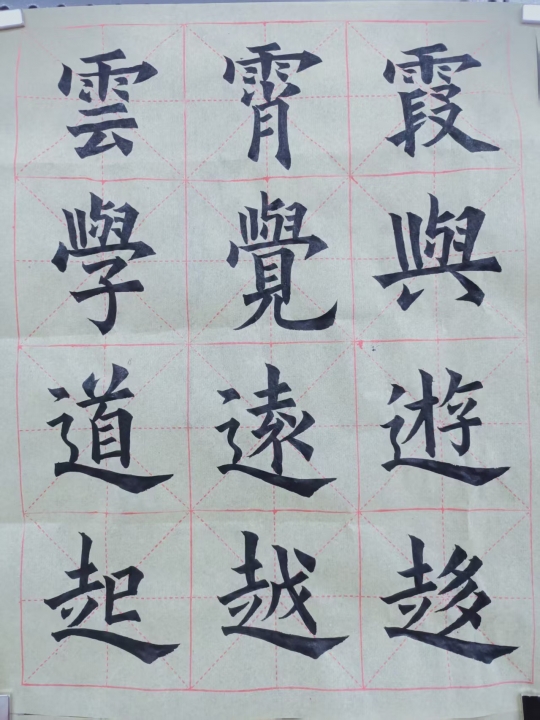 雲霄霞
學覺與
道遠遊
起越趍